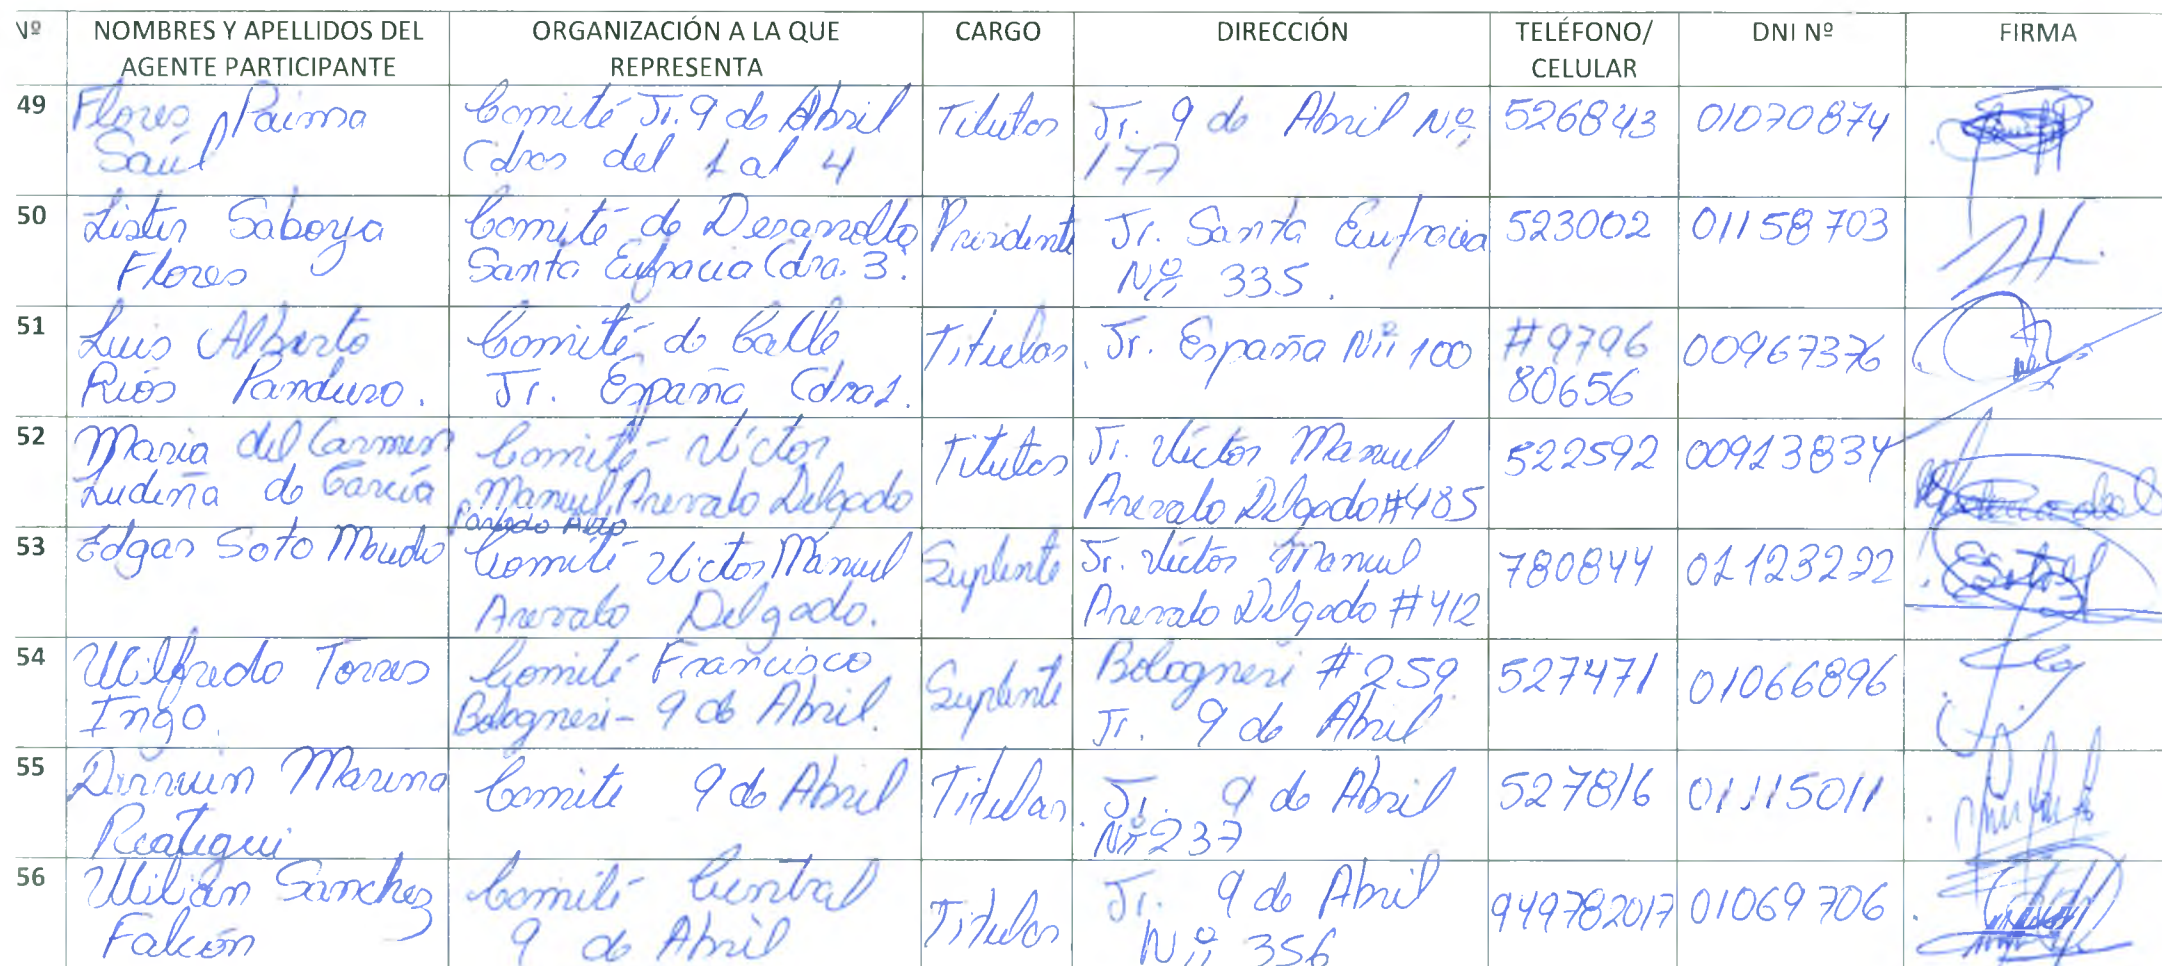 Nº NOMBRES Y APELLIDOS DEL AGENTE PARTICIPANTE ORGANIZACIÓN A LA QUE REPRESENTA CARGO DIRECCIÓN TELÉFONO/ CELULAR DNI Nº FIRMA
49 Flores Paima Saúl Comité Jr. 9 de Abril Cdras del 1 al 4 Titular Jr. 9 de Abril Nº 177 526843 01070874
50 Lister Saboya Flores Comité de Desarrollo Santa Eufracia Cdra. 3. Presidente Jr. Santa Eufracia Nº 335. 523002 01158703
51 Luis Alberto Ríos Panduro. Comité de Calle Jr. España Cdra 1. Titular Jr. España Nº 100 #9796 80656 00967376
52 Maria del Carmen Ludeña de García Comité Víctor Manuel Arevalo Delgado Titular Jr. Víctor Manuel Arevalo Delgado #485 522592 00913834
53 Edgar Soto Comité Victor Manuel Arevalo Delgado. Suplente Jr. Víctor Manuel Arevalo Delgado #412 780844 01123292
54 Wilfredo Torres Ingo. Comité Francisco Bolognesi - 9 de Abril. Suplente Bolognesi #259 Jr. 9 de Abril 527471 01066896
55 Marina Reategui Comite 9 de Abril Titular Jr. 9 de Abril Nº 237 527816 01115011
56 Wilian Sanchez Falcón Comité Central 9 de Abril Titular Jr. 9 de Abril Nº 356 949782017 01069706